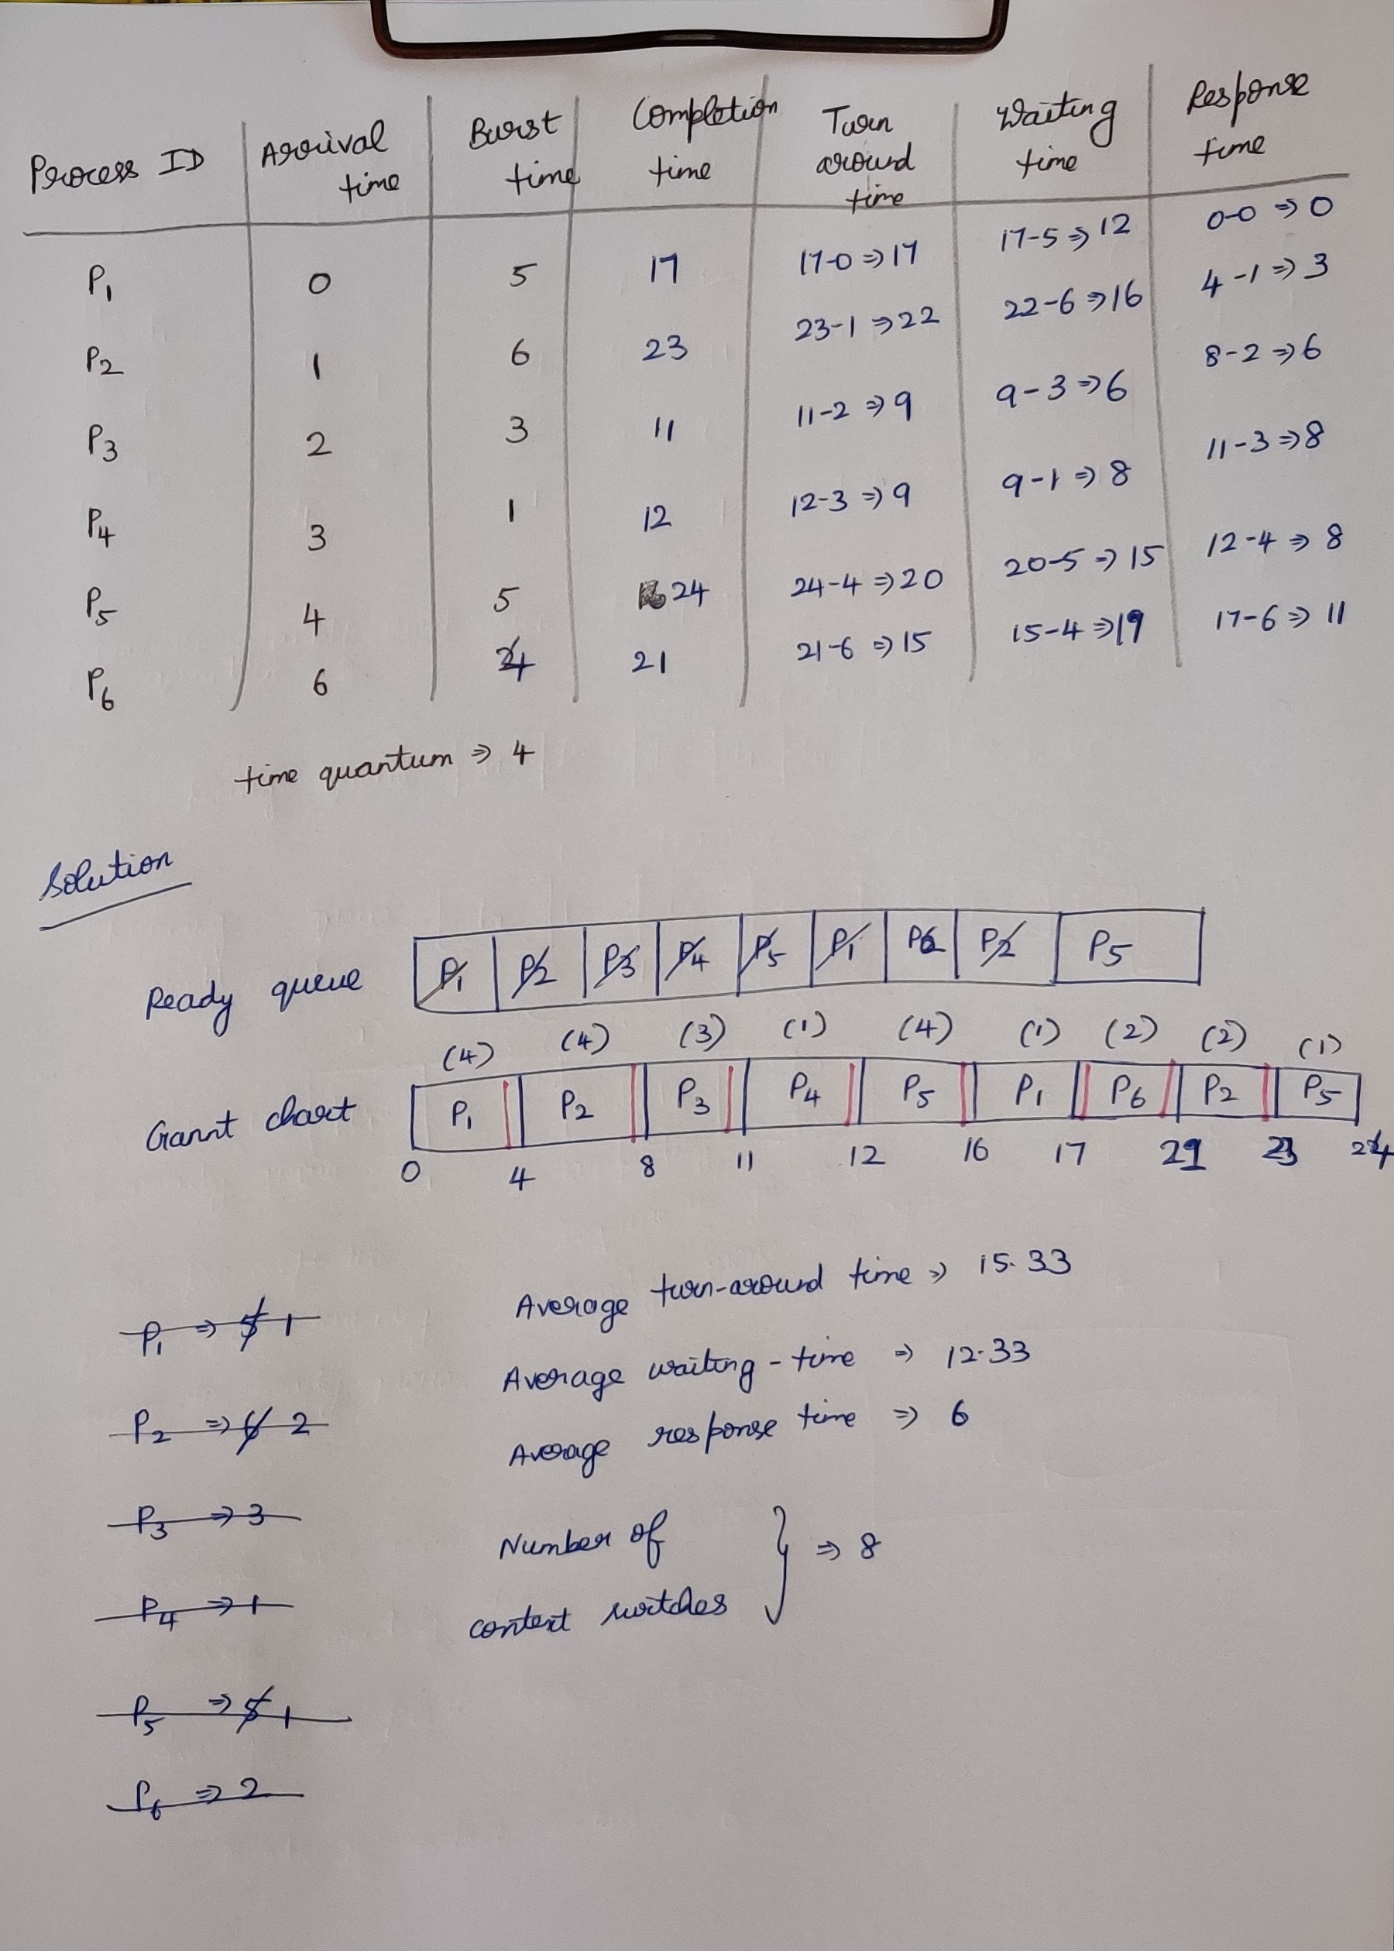 Process ID Arrival time Burst time Completion time Turn around time Waiting time Response time
P1 0 5 17 17-0 ⇒ 17 17-5 ⇒ 12 0-0 ⇒ 0
P2 1 6 23 23-1 ⇒ 22 22-6 ⇒ 16 4-1 ⇒ 3
P3 2 3 11 11-2 ⇒ 9 9-3 ⇒ 6 8-2 ⇒ 6
P4 3 1 12 12-3 ⇒ 9 9-1 ⇒ 8 11-3 ⇒ 8
P5 4 5 24 24-4 ⇒ 20 20-5 ⇒ 15 12-4 ⇒ 8
P6 6 4 21 21-6 ⇒ 15 15-4 ⇒ 19 17-6 ⇒ 11
time quantum ⇒ 4
Solution
Ready queue P1 P2 P3 P4 P5 P1 P6 P2 P5
(4) (4) (3) (1) (4) (1) (2) (2) (1)
Gannt chart P1 P2 P3 P4 P5 P1 P6 P2 P5
0 4 8 11 12 16 17 21 23 24
Average turn-around time ⇒ 15.33
Average waiting-time ⇒ 12.33
Average response time ⇒ 6
Number of context switches } ⇒ 8
P1 ⇒ 5 1
P2 ⇒ 6 2
P3 ⇒ 3
P4 ⇒ 1
P5 ⇒ 5 1
P6 ⇒ 2